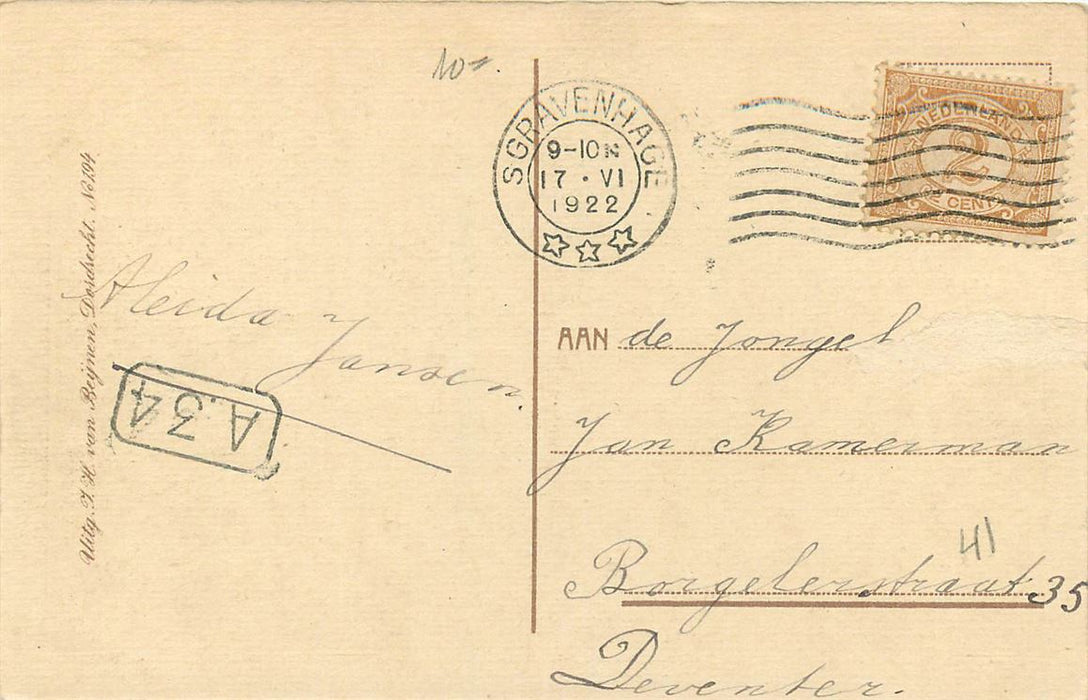 10=.
SGRAVENHAGE
9-10N
17·VI
1922
NEDERLAND
2
CENT
Uitg. J. H. van Beijnen, Dordrecht. No 194
Aleida Jansen.
A.34
AAN de Jongeh
Jan Kamerman
41
Borgelerstraat 35
Deventer.